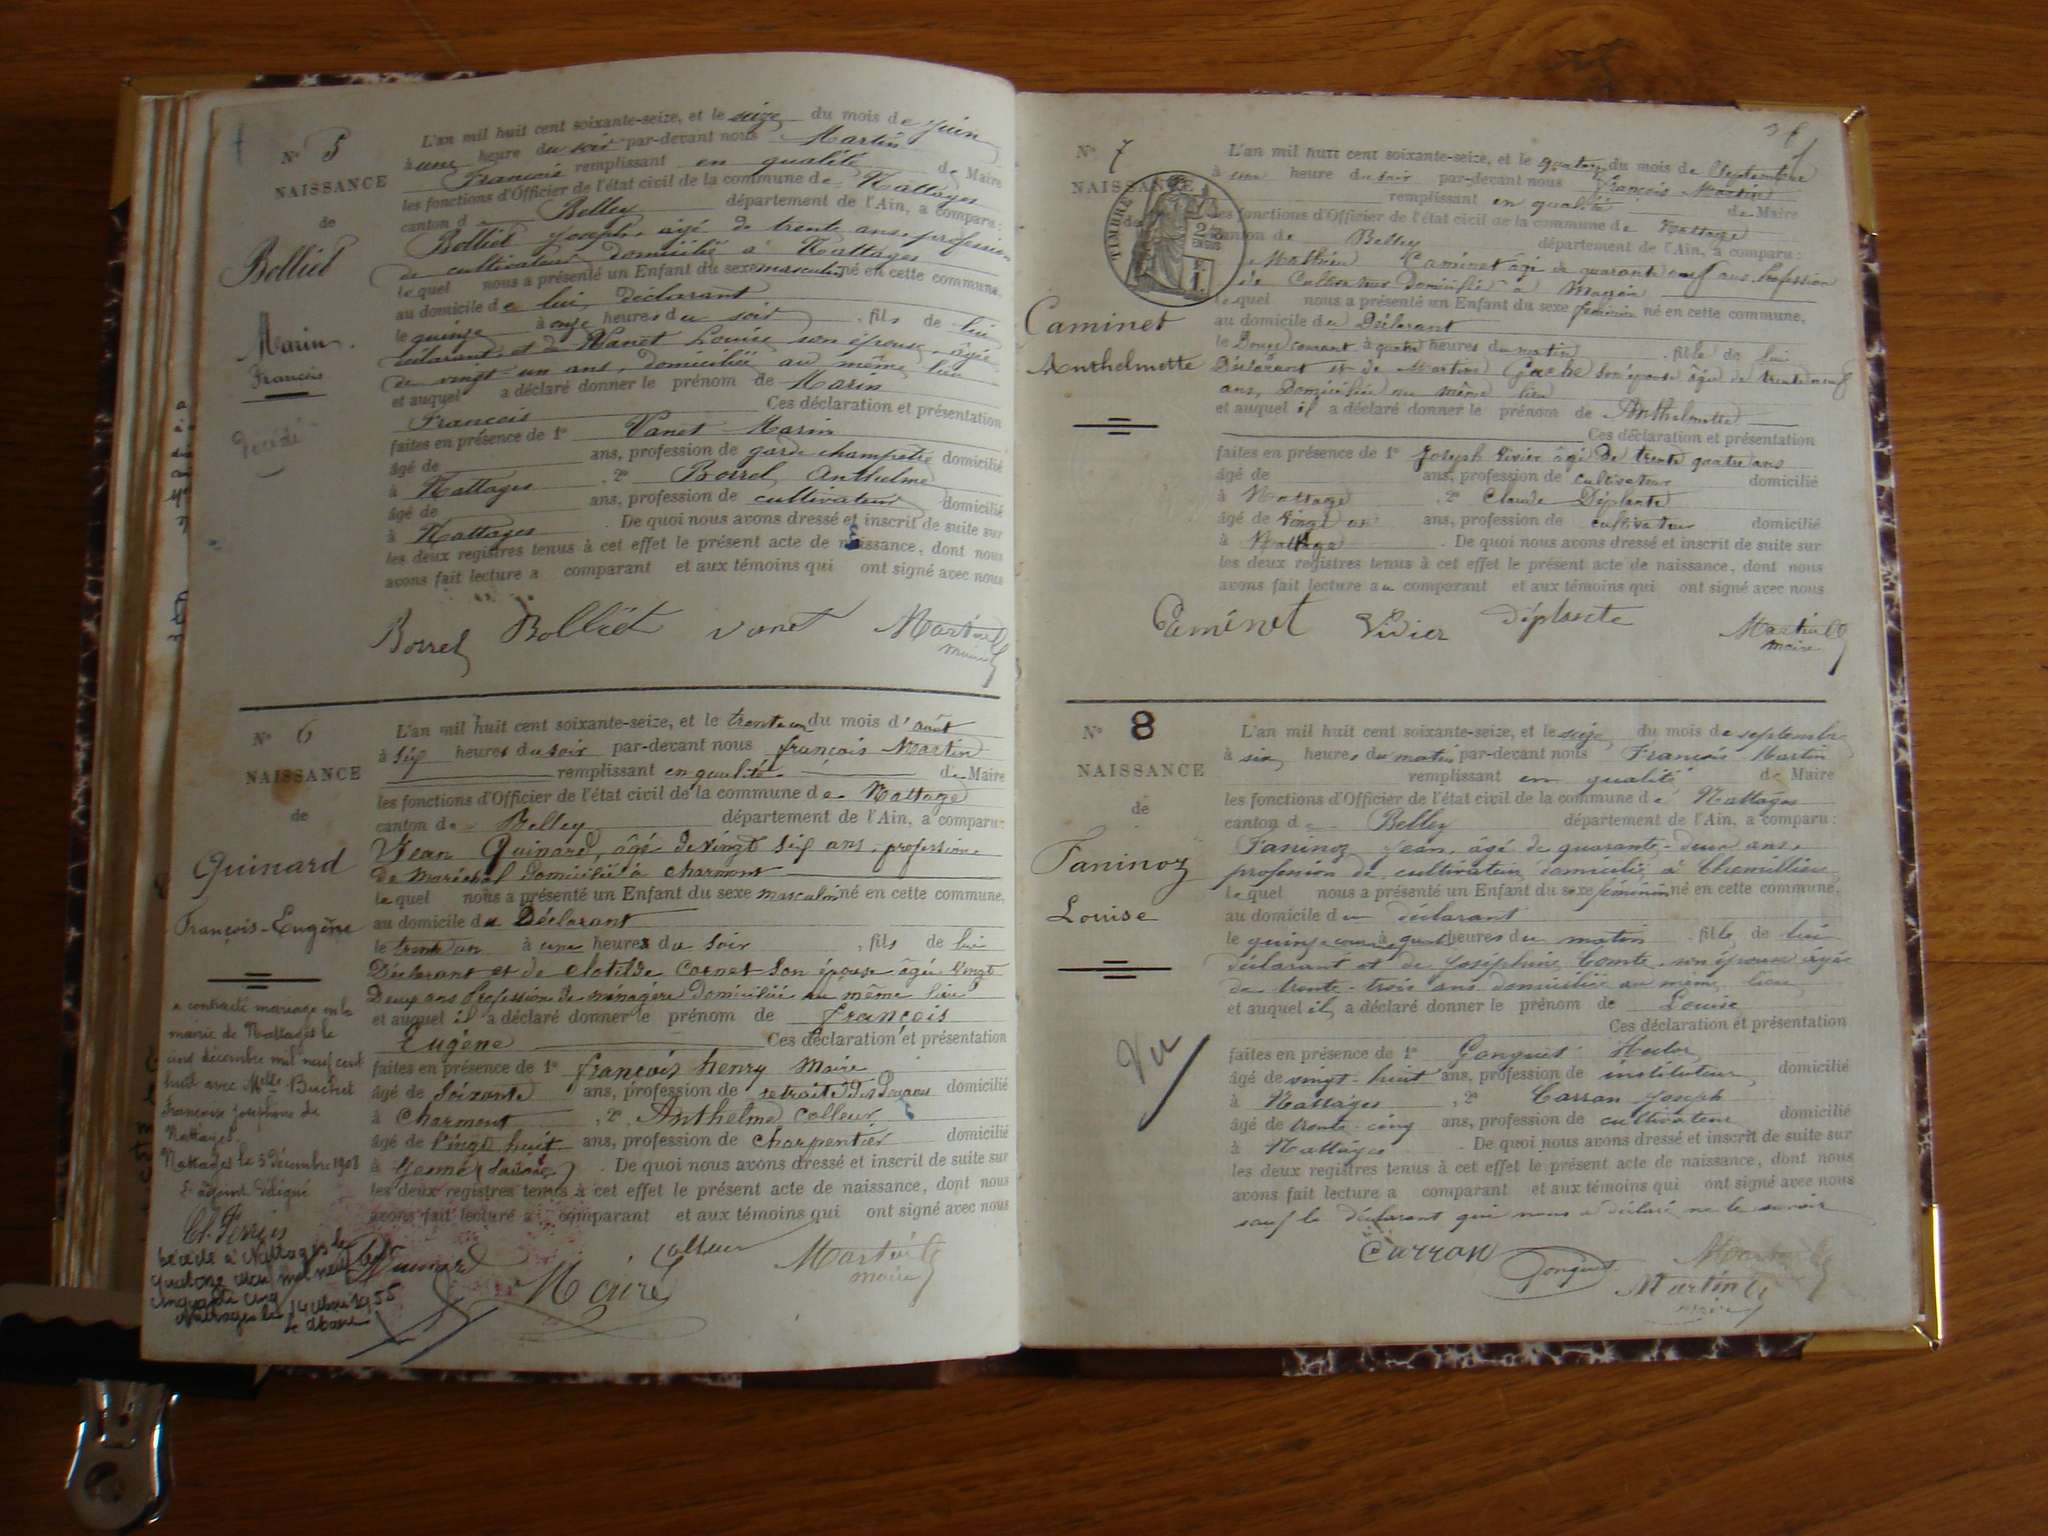 N° 5
NAISSANCE
de
Bolliet
Marin
François
Décédé
L'an mil huit cent soixante-seize, et le seize du mois de juin
à une heure du soir par-devant nous Martin
François remplissant en qualité de Maire
les fonctions d'Officier de l'état civil de la commune de Nattages
canton d Belley département de l'Ain, a comparu:
Bolliet Joseph, âgé de trente ans, profession
de cultivateur domicilié à Nattages
lequel nous a présenté un Enfant du sexe masculin né en cette commune,
au domicile de lui, déclarant
le quinze à onze heures du soir, fils de lui
déclarant et de Vanet Louise son épouse, âgée
de vingt-un ans, domiciliée au même lieu
et auquel a déclaré donner le prénom de Marin
François Ces déclaration et présentation
faites en présence de 1° Vanet Marin
âgé de ans, profession de garde champêtre domicilié
à Nattages, 2° Borrel Anthelme
âgé de ans, profession de cultivateur domicilié
à Nattages. De quoi nous avons dressé et inscrit de suite sur
les deux registres tenus à cet effet le présent acte de naissance, dont nous
avons fait lecture a comparant et aux témoins qui ont signé avec nous
Borrel Bolliet Vanet Martin
maire
N° 6
NAISSANCE
de
Quinard
François-Eugène
L'an mil huit cent soixante-seize, et le trente un du mois d'août
à six heures du soir par-devant nous françois Martin
remplissant en qualité de Maire
les fonctions d'Officier de l'état civil de la commune de Nattage
canton de Belley département de l'Ain, a comparu:
Jean Quinard, âgé de vingt six ans, profession
de Maréchal domicilié à Charmont
lequel nous a présenté un Enfant du sexe masculin né en cette commune,
au domicile du Déclarant
le trente un à une heures du soir, fils de lui
Déclarant et de Clotilde Cornet son épouse âgée vingt
Deux ans Profession de ménagère Domiciliée au même lieu
et auquel il a déclaré donner le prénom de françois
Eugène Ces déclaration et présentation
faites en présence de 1° françois henry Maire
âgé de Soixante ans, profession de retraité des Douanes domicilié
à Charmont, 2° Anthelme Colleux
âgé de Vingt huit ans, profession de Charpentier domicilié
à Yenne (Savoie). De quoi nous avons dressé et inscrit de suite sur
les deux registres tenus à cet effet le présent acte de naissance, dont nous
avons fait lecture au comparant et aux témoins qui ont signé avec nous
Colleux Martin
maire
a contracté mariage en la
mairie de Nattages le
cinq décembre mil neuf cent
huit avec Melle Buchet
Françoise Joséphine de
Nattages.
Nattages le 5 Décembre 1908
L'adjoint délégué
Décédé à Nattages le
quatorze mai mil neuf cent
cinquante cinq
Nattages le 14 Mai 1955
Le Maire
N° 7
NAISSANCE
de
TIMBRE
EN SUS
Caminet
Anthelmette
L'an mil huit cent soixante-seize, et le quatorze du mois de Septembre
à une heure du soir par-devant nous François Martin
remplissant en qualité de Maire
les fonctions d'Officier de l'état civil de la commune de Nattage
canton de Belley département de l'Ain, a comparu:
Mathieu Caminet âgé de quarante neuf ans, Profession
de Cultivateur Domicilié à
lequel nous a présenté un Enfant du sexe féminin né en cette commune,
au domicile du Déclarant
le Douze courant à quatre heures du matin, fille de lui
Déclarant et de Martine Gache son épouse âgée de trente neuf
ans, Domiciliée au même lieu
et auquel il a déclaré donner le prénom de Anthelmette
Ces déclaration et présentation
faites en présence de 1° Joseph Vivier âgé de trente quatre ans
âgé de ans, profession de cultivateur domicilié
à Nattage, 2° Claude Déplante
âgé de Vingt un ans, profession de cultivateur domicilié
à Nattage. De quoi nous avons dressé et inscrit de suite sur
les deux registres tenus à cet effet le présent acte de naissance, dont nous
avons fait lecture au comparant et aux témoins qui ont signé avec nous
Caminet Vivier Déplante Martin
maire
N° 8
NAISSANCE
de
Taninoz
Louise
Vu
L'an mil huit cent soixante-seize, et le seize du mois de septembre
à six heures du matin par-devant nous François Martin
remplissant en qualité de Maire
les fonctions d'Officier de l'état civil de la commune de Nattages
canton d Belley département de l'Ain, a comparu:
Taninoz Jean, âgé de quarante-deux ans,
profession de cultivateur, domicilié à Chemillieu
lequel nous a présenté un Enfant du sexe féminin né en cette commune,
au domicile du déclarant
le quinze courant à quatre heures du matin, fille de lui
déclarant et de Joséphine Comte, son épouse âgée
de trente-trois ans domiciliée au même lieu
et auquel il a déclaré donner le prénom de Louise
Ces déclaration et présentation
faites en présence de 1° Gonguet
âgé de vingt-huit ans, profession de instituteur, domicilié
à Nattages, 2° Carran Joseph
âgé de trente-cinq ans, profession de cultivateur domicilié
à Nattages. De quoi nous avons dressé et inscrit de suite sur
les deux registres tenus à cet effet le présent acte de naissance, dont nous
avons fait lecture a comparant et aux témoins qui ont signé avec nous
sauf le déclarant qui nous a déclaré ne le savoir
Carran Gonguet Martin
maire